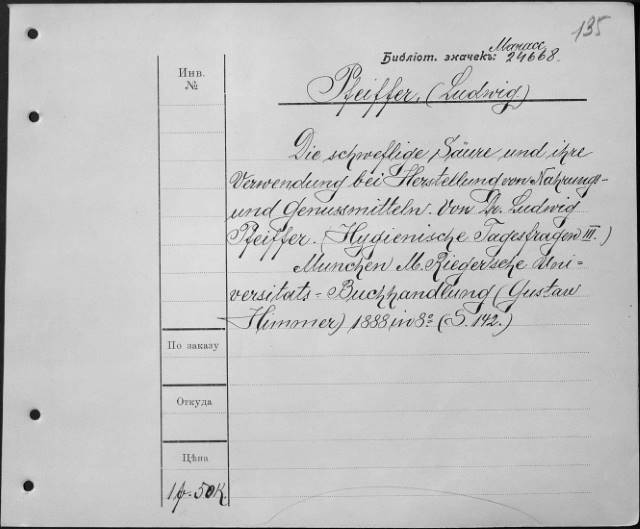 135
Манасс
Библіот. значекъ: 24668.
Инв.
№
Pfeiffer. (Ludwig)
Die schweflige Säure und ihre
Verwendung bei Herstellung von Nahrungs-
und Genussmitteln. Von Dr. Ludwig
Pfeiffer. (Hygienische Tagesfragen III.)
München M. Riegersche Uni-
versitäts-Buchhandlung (Gustav
Himmer) 1888 in 8° (S. 142.)
По заказу
Откуда
Цѣна
1 р. 50 К.